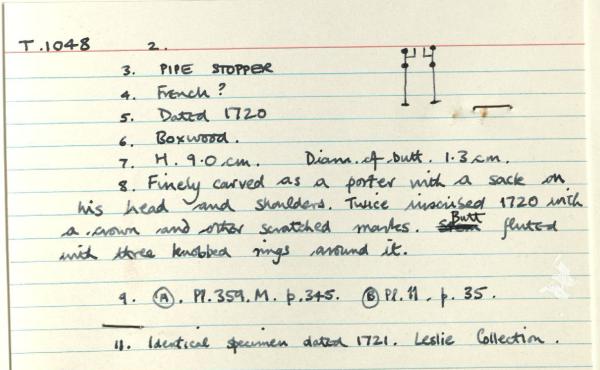 T.1048 2.
3. PIPE STOPPER
4. French?
5. Dated 1720
6. Boxwood.
7. H. 9.0 cm. Diam. of butt. 1.3 cm.
8. Finely carved as a porter with a sack on
his head and shoulders. Twice inscribed 1720 with
a crown and other scratched marks. Butt fluted
with three knobbed rings around it.
9. (A). Pl. 359. M. p. 345. (B) Pl. 11. p. 35.
11. Identical specimen dated 1721. Leslie Collection.